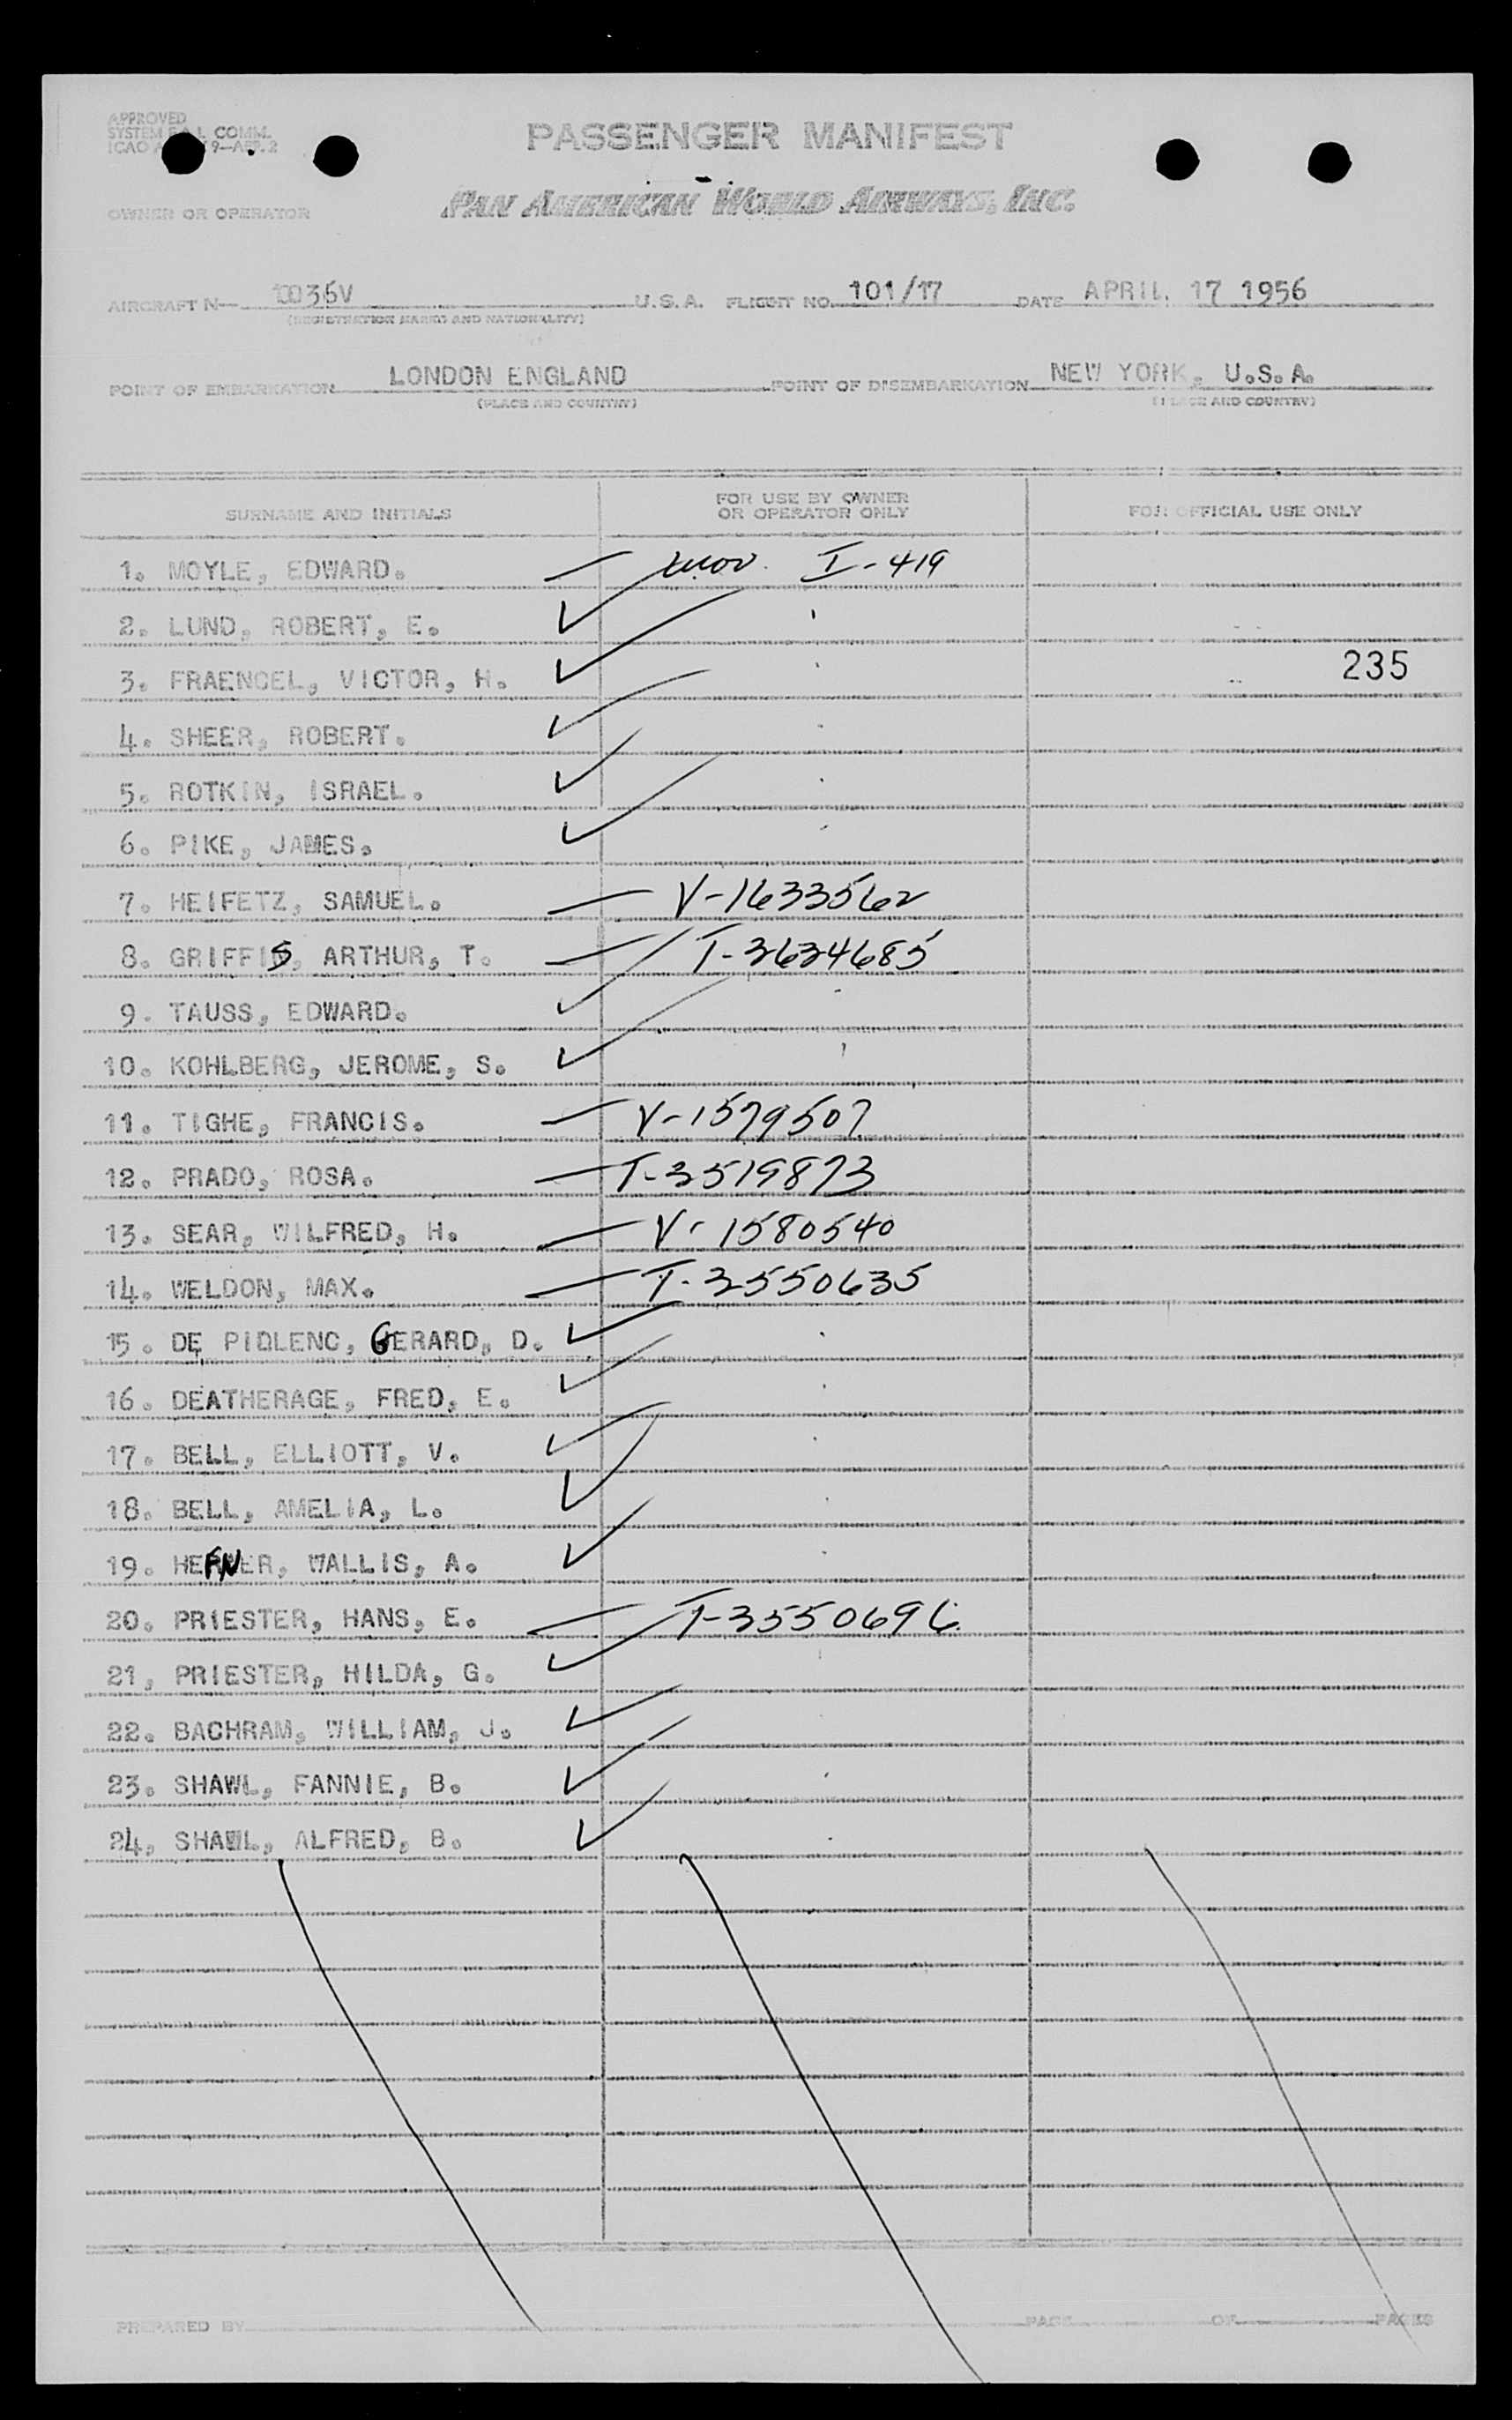 APPROVED
SYSTEM F.A.L COMM.
ICAO 9—APP. 2
PASSENGER MANIFEST
OWNER OR OPERATOR
PAN AMERICAN WORLD AIRWAYS, INC.
AIRCRAFT N— 1036V U.S.A. FLIGHT NO. 101/17 DATE APRIL 17 1956
(REGISTRATION MARKS AND NATIONALITY)
POINT OF EMBARKATION LONDON ENGLAND POINT OF DISEMBARKATION NEW YORK, U.S.A.
(PLACE AND COUNTRY) (PLACE AND COUNTRY)
SURNAME AND INITIALS FOR USE BY OWNER OR OPERATOR ONLY FOR OFFICIAL USE ONLY
1. MOYLE, EDWARD. I-419
2. LUND, ROBERT, E.
3. FRAENCEL, VICTOR, H. 235
4. SHEER, ROBERT.
5. ROTKIN, ISRAEL.
6. PIKE, JAMES.
7. HEIFETZ, SAMUEL. V-1633562
8. GRIFFIS, ARTHUR, T. T-3634685
9. TAUSS, EDWARD.
10. KOHLBERG, JEROME, S.
11. TIGHE, FRANCIS. V-1579507
12. PRADO, ROSA. T-3519873
13. SEAR, WILFRED, H. V-1580540
14. WELDON, MAX. T-3550635
15. DE PIOLENC, GERARD, D.
16. DEATHERAGE, FRED, E.
17. BELL, ELLIOTT, V.
18. BELL, AMELIA, L.
19. HEFNER, WALLIS, A.
20. PRIESTER, HANS, E. T-3550696
21, PRIESTER, HILDA, G.
22. BACHRAM, WILLIAM, J.
23. SHAWL, FANNIE, B.
24, SHAWL, ALFRED, B.
PREPARED BY PAGE OF PAGES